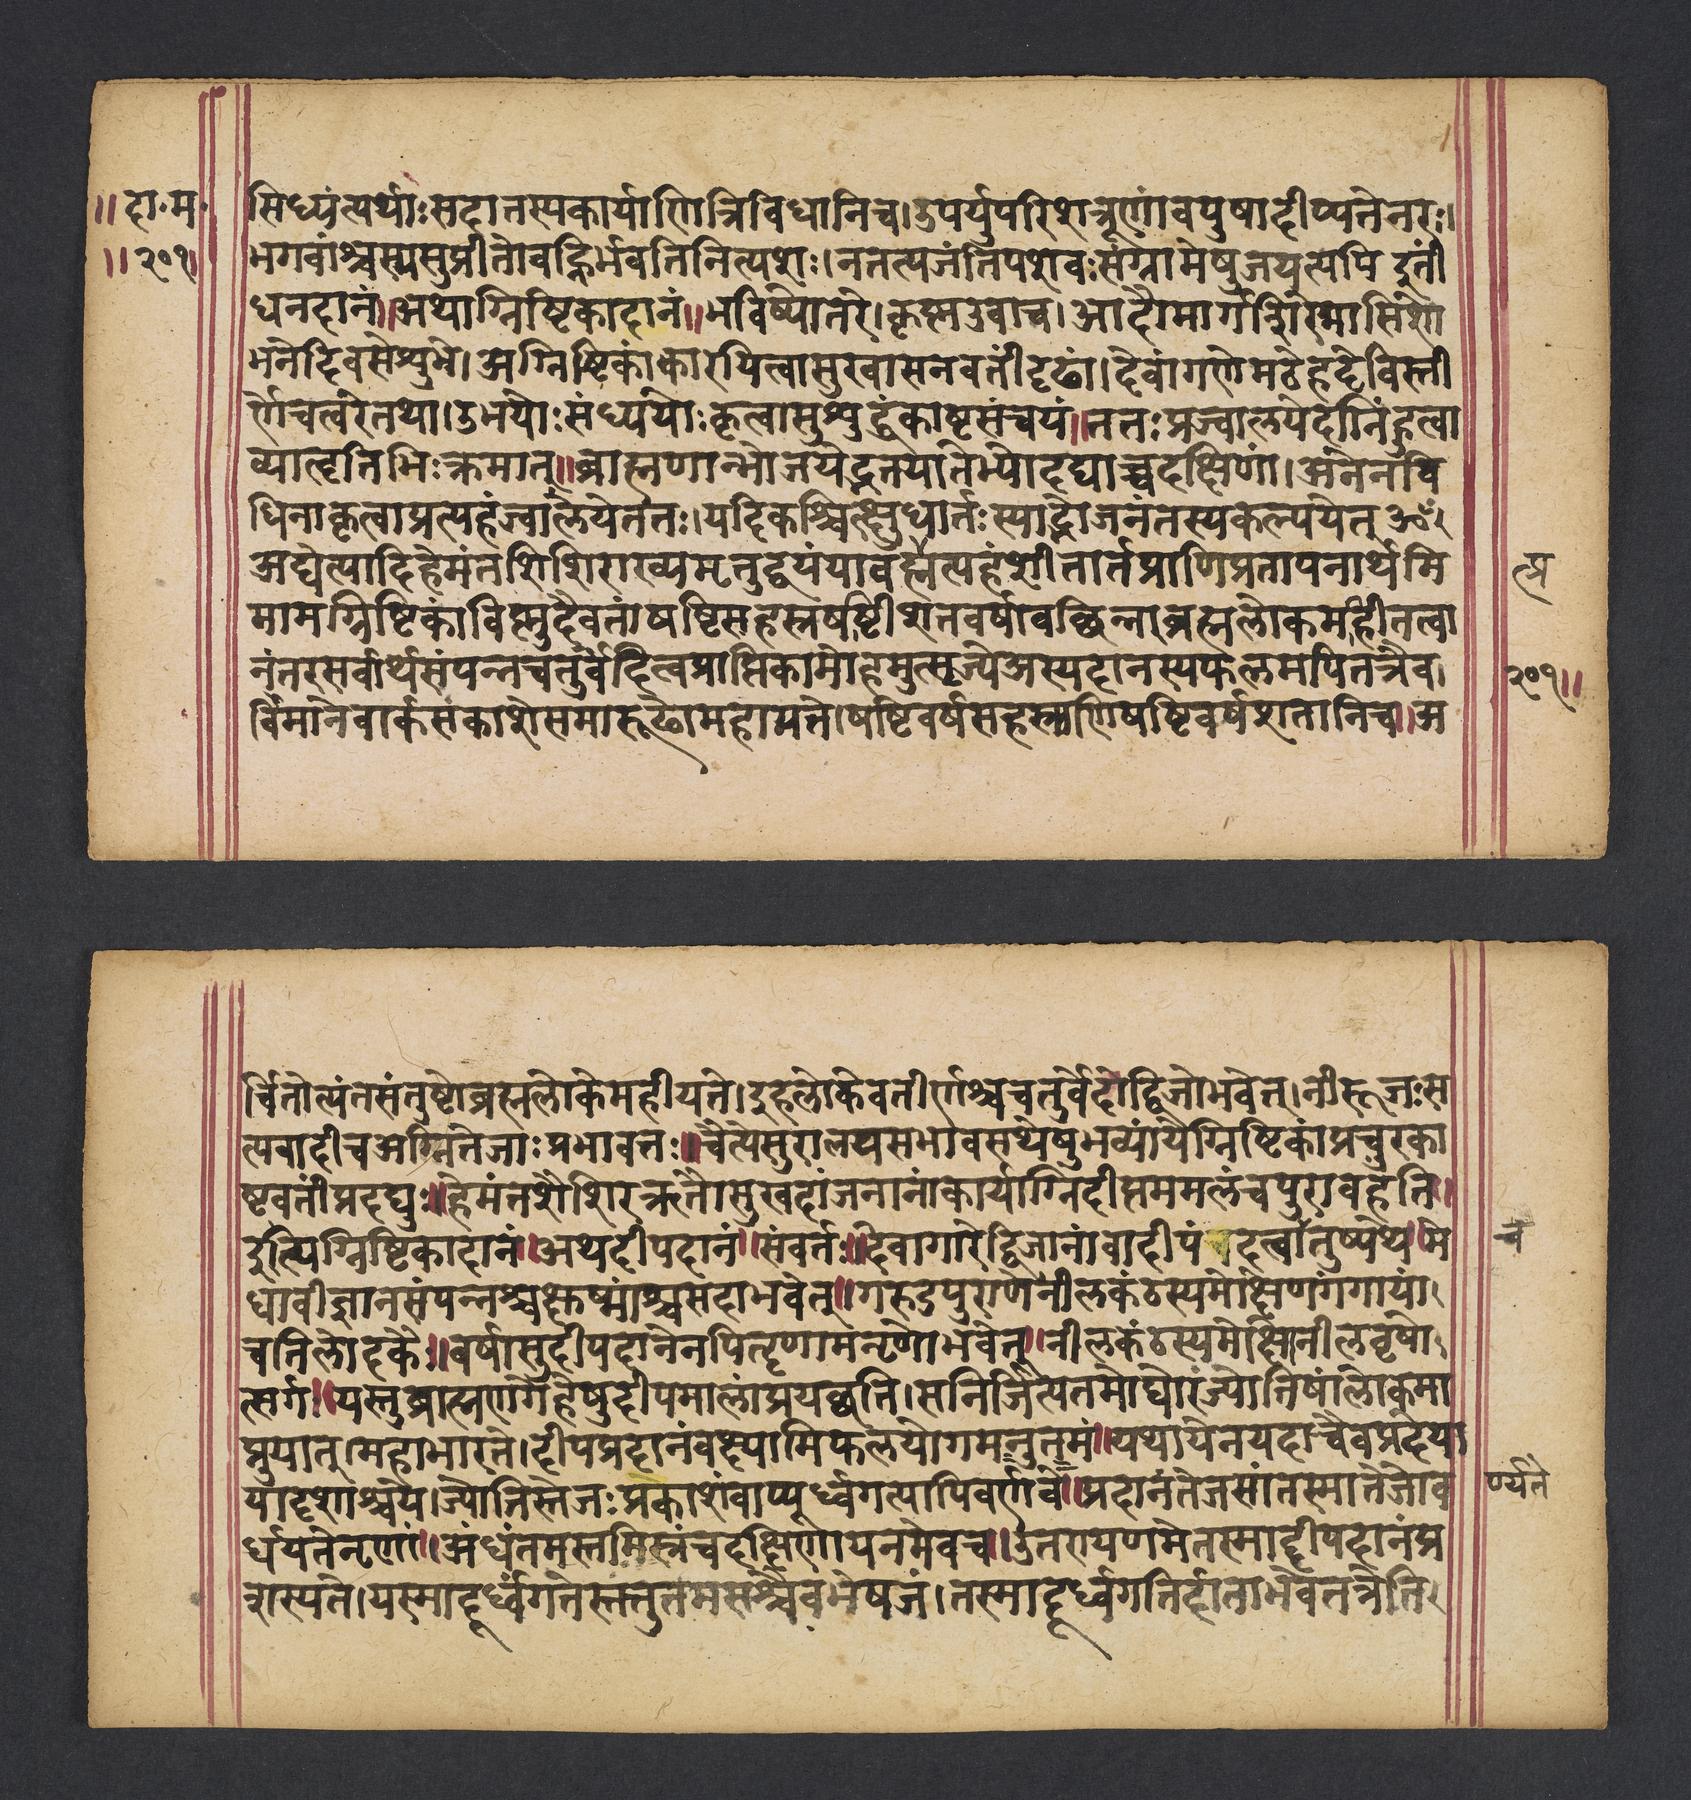 ॥दा॰म॰
॥२०१॥
सिध्यंत्यर्थाः सदा तस्य कार्याणि त्रिविधानि च। उपर्युपरि शत्रूणां वपुषा दीप्यते नरः।
भगवांश्चास्य सुप्रीतो वह्निर्भवति नित्यशः। न तं त्यजंति पशवः संग्रामेषु जयत्यपि इतीं
धनदानं॥ अथाग्निष्टिकादानं॥ भविष्योत्तरे। कृष्ण उवाच। आदौ मार्गशिरे मासि शो
भने दिवसे शुभे। अग्निष्टिकां कारयित्वा सुखासनवतीं दृढां। देवांगणे मठे हट्टे विस्ती
र्णे चत्वरे तथा। उभयोः संध्ययोः कृत्वा सुशुद्धं काष्टसंचयं॥ ततः प्रज्वालयेदग्निं हुत्वा
व्याहृतिभिः क्रमात्॥ ब्राह्मणान्भोजयेद्भूतयातेभ्यो दद्याच्च दक्षिणां। अनेन वि
धिना कृत्वा प्रत्यहं ज्वालयेत्ततः। यदि कश्चित्क्षुधार्तः स्याद्भोजनं तस्य कल्पयेत् ॐ
अद्येत्यादि हेमंतशिशिराख्यमृतुद्वयं यावत्प्रत्यहं शीतार्तप्राणिप्रतापनार्थमि
त्प्र
मामग्निष्टिकां विष्णुदैवतां षष्टिसहस्रषष्टीशतवर्षावच्छिन्नाब्रह्मलोकमहीतत्वा
नंतरसर्वार्थसंपन्नचतुर्वेदित्वप्राप्तिकामोहमुत्सृज्ये अस्य दानस्य फलमपि तत्रैव।
२०१॥
विमानेवार्कसंकाशे समारूढो महामते। षष्टिवर्षसहस्राणि षष्टिवर्षशतानि च॥ अ
र्चितोत्यंतसंतुष्टो ब्रह्मलोके महीयते। इहलोकेवतीर्णश्च चतुर्वेदो द्विजो भवेत्। नीरूजः स
त्यवादी च अग्नितेजाः प्रभावतः॥ चैत्ये सुरालयसभावसथेषु भव्यां येग्निष्टिकां प्रचुरका
ष्टवतीं प्रदद्युः॥ हेमंतशैशिरऋतौ सुखदां जनानां कार्याग्निदीप्तममलं च पुरा वहंति॥
इत्यग्निष्टिकादानं॥ अथ दीपदानं॥ संवर्तः॥ देवागारे द्विजानां वा दीपं दत्वा तुष्पथे। मे
च
धावी ज्ञानसंपन्नश्चक्षुष्मांश्च सदा भवेत्॥ गरूडपुराणे नीलकंठस्य मोक्षेण गंगायां
च तिलोदकैः॥ वर्षासु दीपदानेन पितॄणामनृणो भवेत्॥ नीलकंठस्य मोक्षो नीलवृषो
त्सर्गः॥ यस्तु ब्राह्मणगेहेषु दीपमालां प्रयच्छति। स निर्जित्य तमो घोरं ज्योतिषां लोकमा
प्नुयात्। महाभारते। दीपप्रदानं वक्ष्यामि फलयोगमनुतमं॥ यथा येन यदा चैव प्रदेया
यादृशाश्च ये। ज्योतिस्तेजः प्रकाशं वाप्यूर्ध्वगत्यापि वर्णवे॥ प्रदानं तेजसां तस्मात्तेजो व
र्ण्यते
र्धयते नृणां॥ अंधंतमस्तमिस्रं च दक्षिणायनमेव च॥ उतरायणमेतस्माद्दीपदानं प्र
शस्यते। यस्मादूर्ध्वगतेस्तत्तु तमसश्चैव भेषजं। तस्मादूर्ध्वगतिर्दाता भवेतत्रेति